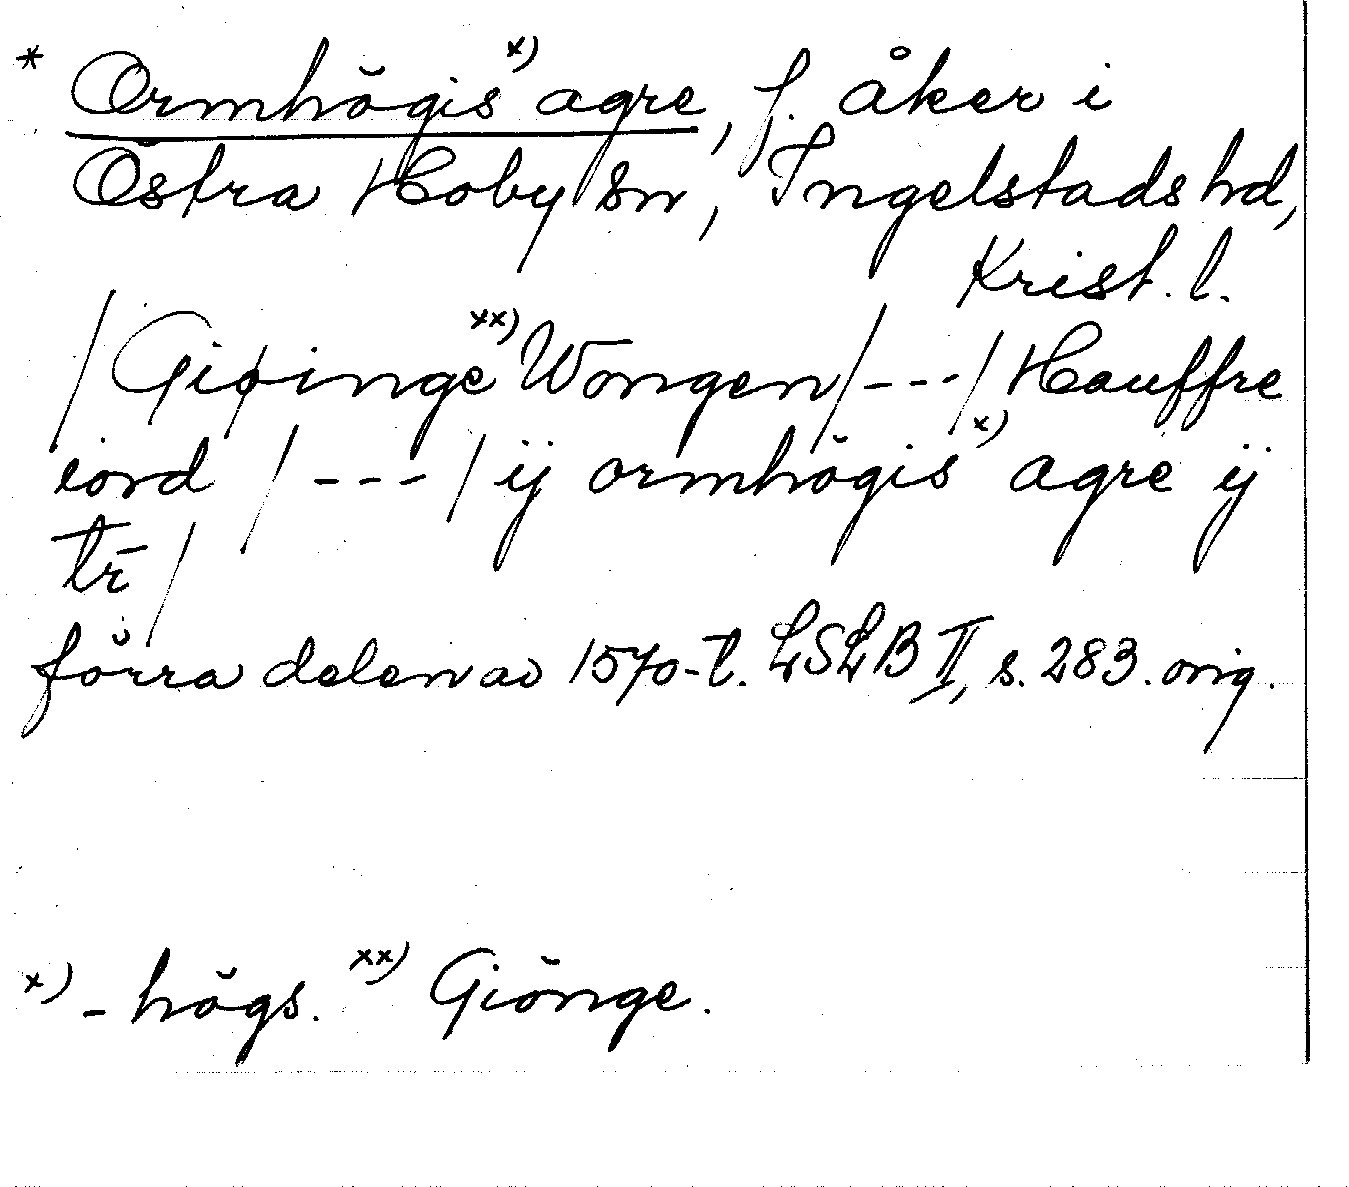 * Ormhögis x) agre, f. åker i
Östra Hoby sn, Ingelstads hd,
Krist. l.
/ Giøinge xx) Wongen / --- / Hauffre
iord / --- / ij ormhögis x) agre ij
tr̄ /
förra delen av 1570-t. LSLB II, s. 283. orig.
x) - högs. xx) Giönge.